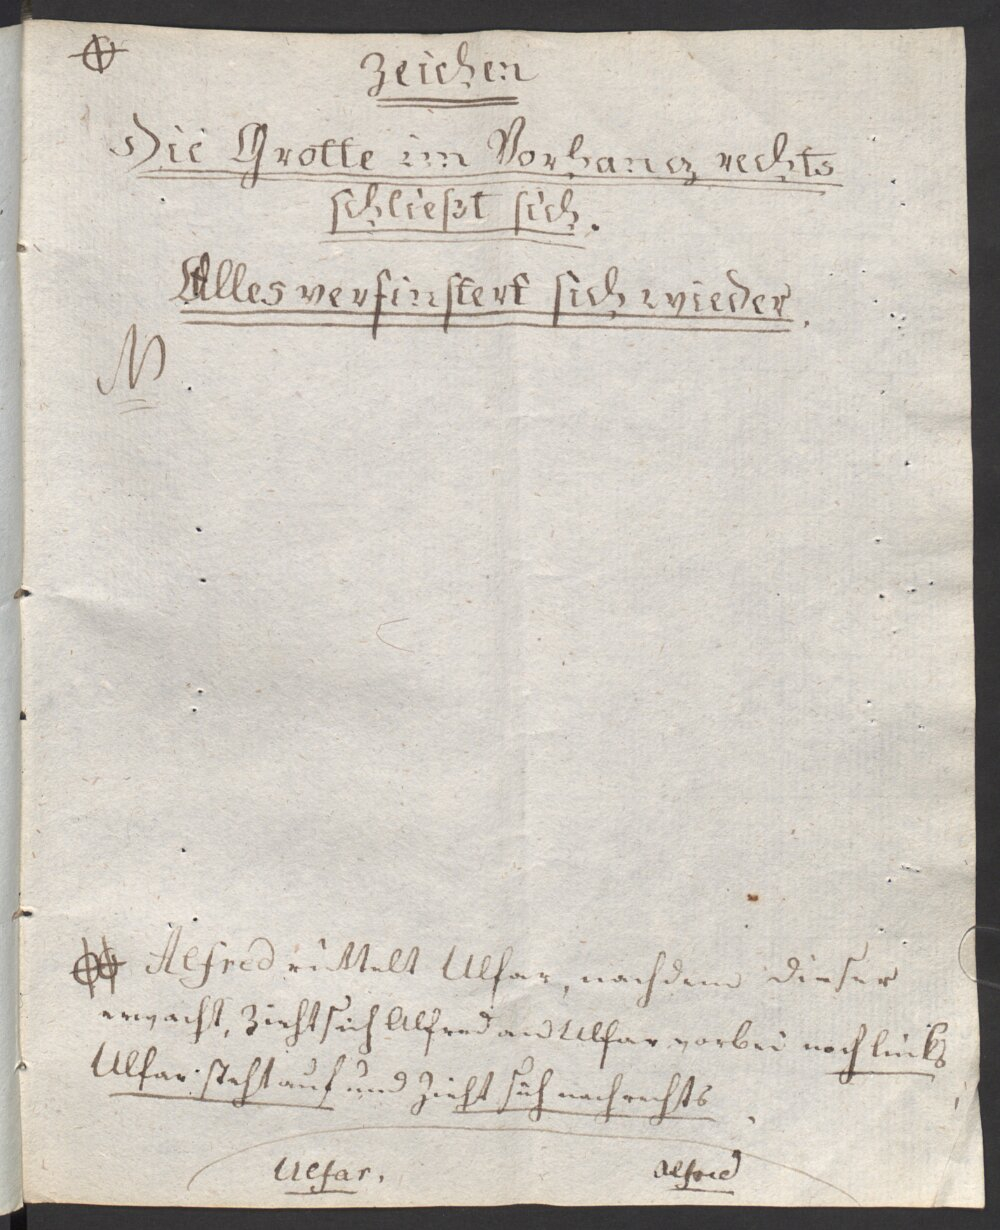 Zeichen
Die Grotte im Vorhang rechts
schließt sich.
Alles verfinstert sich wieder.
N
Alfred rüttelt Ulfar, nachdem dieser
erwacht, zieht sich Alfred an Ulfar vorbei nach links
Ulfar steht auf und zieht sich nach rechts
Ulfar. Alfred